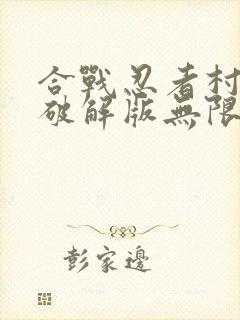 合戰忍者村
破解版無限
彭家邊